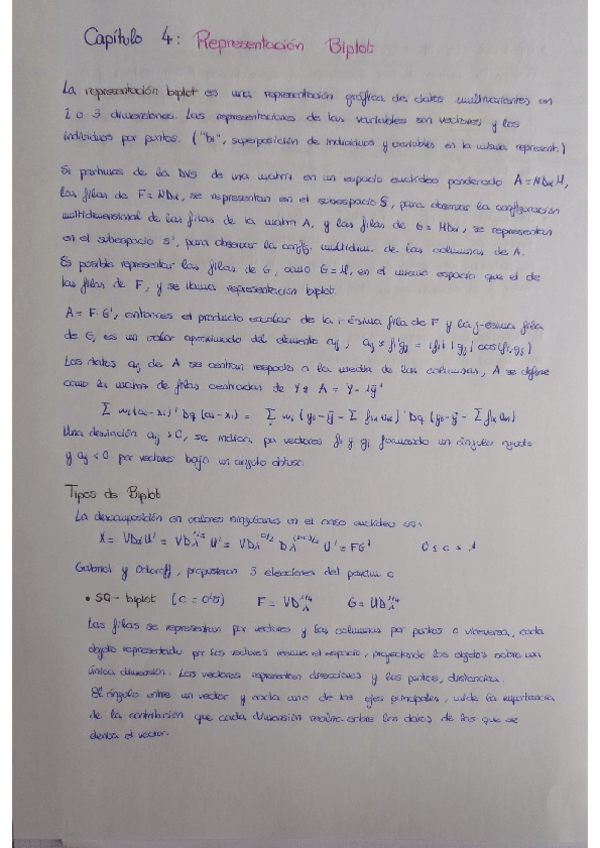 Capítulo 4: Representación Biplot
La representación biplot es una representación gráfica de datos multivariantes en
2 o 3 dimensiones. Las representaciones de las variables son vectores y los
individuos por puntos. ("bi", superposición de individuos y variables en la misma represent.)
Si partimos de la DVS de una matriz en un espacio euclídeo ponderado A = NDαM,
las filas de F = NDα, se representan en el subespacio S, para observar la configuración
multidimensional de las filas de la matriz A, y las filas de G = MDα, se representan
en el subespacio S', para observar la config. multidim. de las columnas de A.
Es posible representar las filas de G, como G = M, en el mismo espacio que el de
las filas de F, y se llama representación biplot.
A = F·G', entonces el producto escalar de la i-ésima fila de F y la j-ésima fila
de G, es un valor aproximado del elemento aij,
Los datos aij de A se centran respecto a la media de las columnas, A se define
como la matriz de filas centradas de Y: A = Y - 1ȳ'
Una desviación aij > C, se indica por vectores fi y gj formando un ángulo agudo
y aij < 0 por vectores bajo un ángulo obtuso.
Tipos de Biplot
La descomposición en valores singulares en el caso euclídeo es:
0 ≤ c ≤ 1
Gabriel y Odoroff, propusieron 3 elecciones del c
• SQ - biplot (C = 0'5)
Las filas se representan por vectores y las columnas por puntos o viceversa, cada
objeto representado por los vectores el espacio, proyectando los objetos sobre una
única dimensión. Los vectores representan direcciones y los puntos, distancias.
El ángulo entre un vector y cada uno de los ejes principales, mide la importancia
de la contribución que cada dimensión realiza sobre los datos de los que se
deriva el vector.